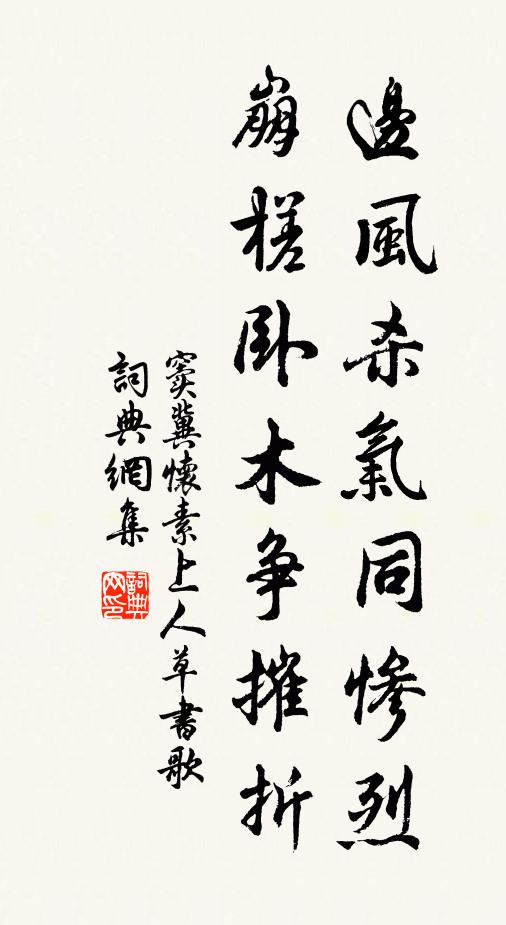 邊風杀氣同慘烈
崩槎卧木争摧折
竇冀懷素上人草書歌
詞典網集
詞典网印